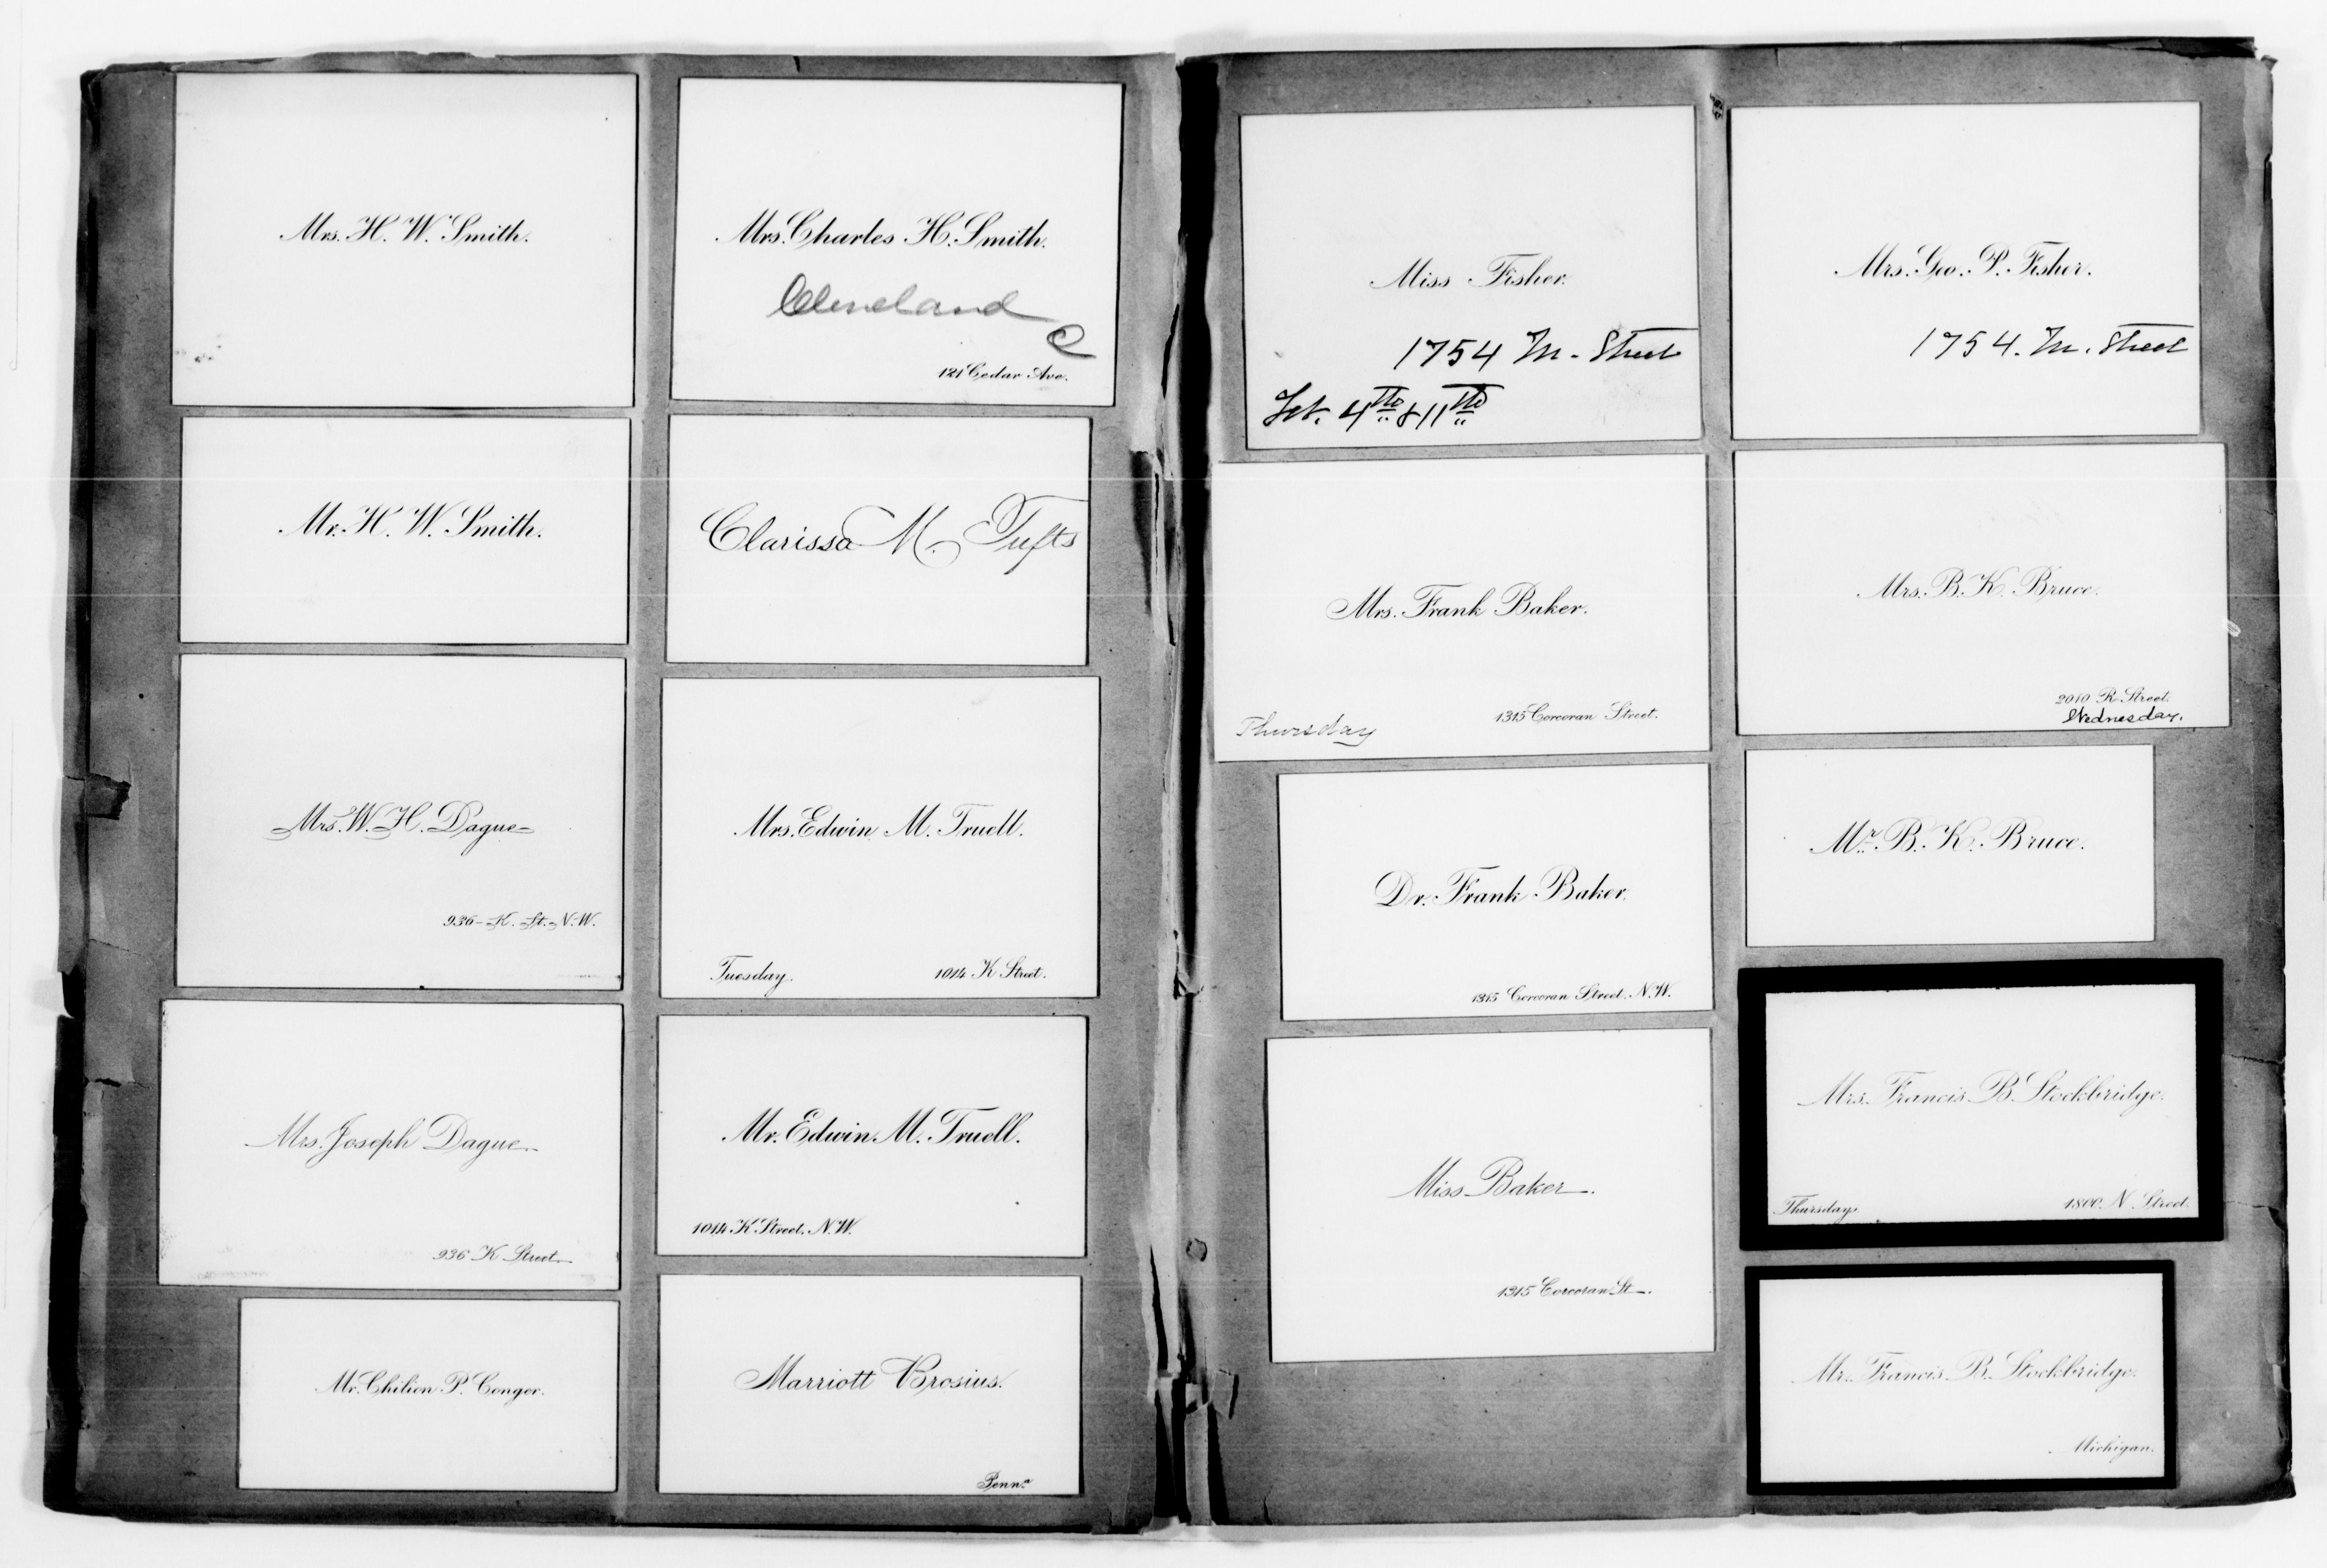 Mrs. H. W. Smith.
Mr. H. W. Smith.
Mrs. W. H. Dague
936 - K. St. N. W.
Mrs. Joseph Dague
936 K Street
Mr. Chilion P. Conger.
Mrs. Charles H. Smith.
Cleveland
O
121 Cedar Ave.
Clarissa M. Tufts
Mrs. Edwin M. Truell.
Tuesday. 1014 K Street.
Mr. Edwin M. Truell.
1014 K Street, N. W.
Marriott Brosius.
Penna
Miss Fisher.
1754 M - Street
Feb. 4th & 11th
Mrs. Frank Baker.
1315 Corcoran Street.
Thursday
Dr. Frank Baker.
1315 Corcoran Street, N. W.
Miss Baker
1315 Corcoran St.
Mrs. Geo. P. Fisher.
1754. M. Street
Mrs. B. K. Bruce.
2010 R Street.
Wednesday.
Mr. B. K. Bruce.
Mrs. Francis B. Stockbridge.
Thursday. 1800 N Street.
Mr. Francis B. Stockbridge.
Michigan.